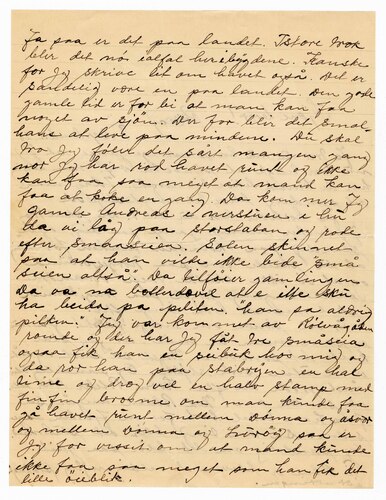 Ja saa er det paa landet. Tstore trok
blir det nå ialfal her i bygdene. Kanske
for jeg skrive lit om havet også. Det er
vere en paa landet. Den gode
gamle tid er for bi at man kan faa
noget av sjøen. Der for blir det smal
hans at leve paa mindene. Du skal
tro jeg føler det sårt mangen gang
når jeg har rod havet rundt og ikke
kan faa saa meget at mand kan
faa at koke en gang. Da kom mer jeg
gamle Andreas i i hu
da vi låg paa og rode
efter smaaseien. Solen skinnet
paa at han vilde ikke bide små
seien altså". Da tilføier gamlingen
Da va no at e ikke sku
ha beida på pilken "han sa aldrig
pilken." Jeg var kommet av
romde og der har jeg fåt tre småseia
ogsaa fik han en seibuk hos mig og
da ror han paa en hal
time og drog vel en halv stamp med
fin fin brosme om man kunde faa
gå havet rundt mellem Dønna og Åsvær
og mellem Dønna og Lurøy saa er
jeg for visset om at mand kunde
ikke faa saa meget som han fik det
lille øieblik.